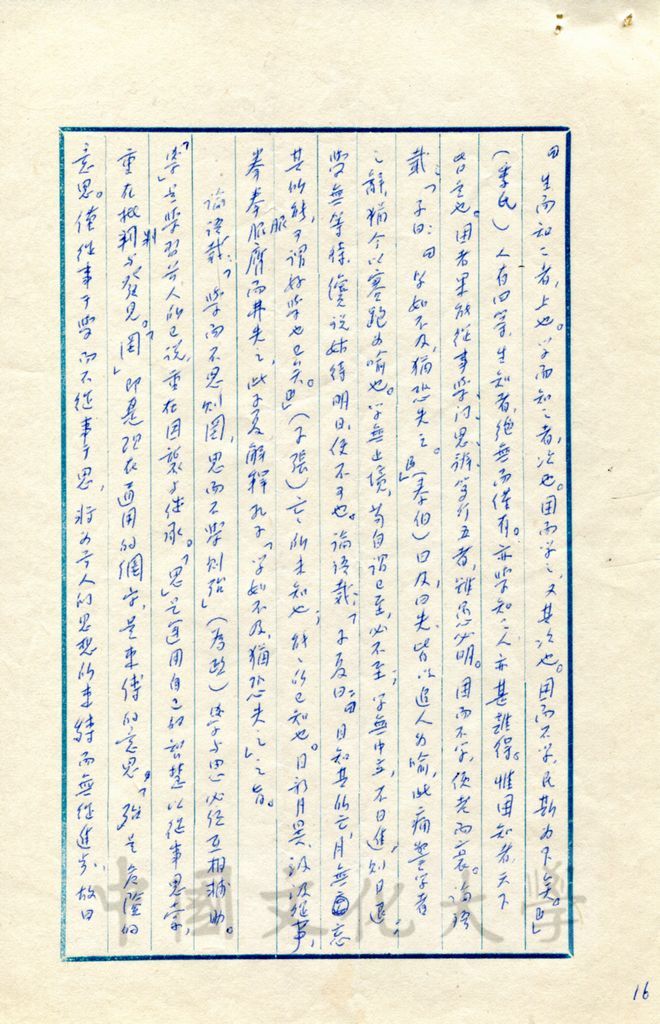 曰生而知之者，上也。學而知之者，次也。困而學之，又其次也。困而不學，民斯為下矣。』」
(季氏)人有四等，生知者，絕無而僅有。亦學知之人亦甚難得。惟困知者，天下
皆是也。困者果能從事學問思辨篤行五者，雖愚必明。困而不學，便老而衰。論語
載：「子曰：『學如不及，猶恐失之。』」(泰伯)曰及，曰失，皆以追人為喻，此痛警學者
之辭猶今以賽跑為喻也。學無止境，苟自謂已至，必不至；學無中立，不日進，則日退；
學無等待，儻說姑待明日，便不可也。論語載：「子夏曰：『日知其所亡，月無忘
其所能，可謂好學也已矣。』」(子張)亡，所未知也；能，所已知也。日新月異，汲汲從事，
拳拳服膺而弗失之，此子夏解釋孔子「學如不及，猶恐失之」之旨。
服
論語載：「學而不思則罔，思而不學則殆」(為政)學與思必須互相輔助。
「學」是學習前人的已說，重在因襲與繼承。「思」是運用自己的智慧以從事思索，
重在批判與發見。「罔」即是現在通用的網字，是束縛的意思。「殆」是危險的
判
意思。僅從事于學而不從事于思，將為前人的思想所束縛而無從進步，故曰
中國文化大學
16